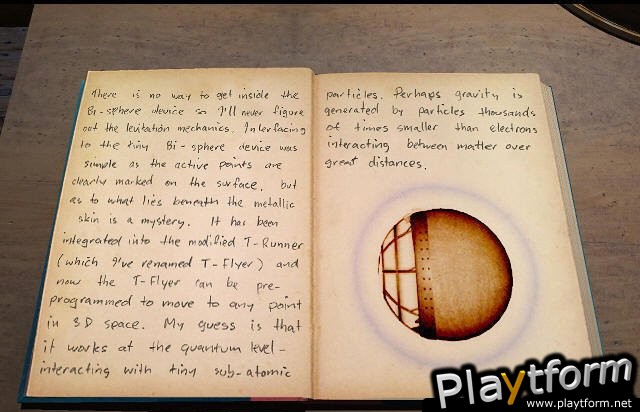 There is no way to get inside the
Bi-sphere device so I'll never figure
out the levitation mechanics. Interfacing
to the tiny Bi-sphere device was
simple as the active points are
clearly marked on the surface, but
as to what lies beneath the metallic
skin is a mystery. It has been
integrated into the modified T-Runner
(which I've renamed T-Flyer) and
now the T-Flyer can be pre-
programmed to move to any point
in 3D space. My guess is that
it works at the quantum level-
interacting with tiny sub-atomic
particles. Perhaps gravity is
generated by particles thousands
of times smaller than electrons
interacting between matter over
great distances.
Playtform
www.playtform.net